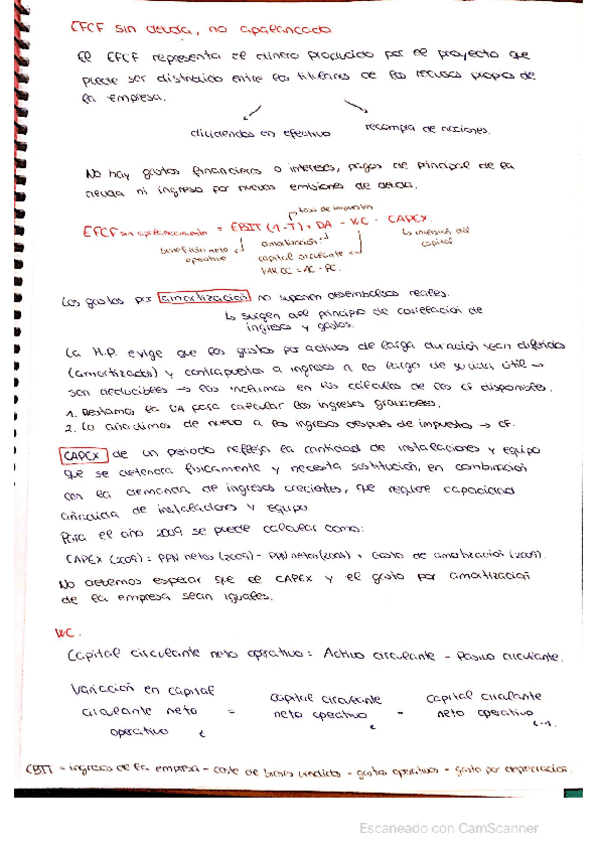 EFCF sin deuda, no apalancado
El EFCF representa el dinero producido por el proyecto que
puede ser distribuido entre los titulares de los recursos propios de
la empresa.
dividendos en efectivo
recompra de acciones.
No hay gastos financieros o intereses, pagos de principal de la
deuda ni ingreso por nuevas emisiones de deuda.
tasa de impuestos
EFCF sin apalancamiento = EBIT (1-T) + DA - WC - CAPEX.
beneficio neto operativo
amortización
capital circulante
VAR CC = AC - PC.
la inversión del capital
Los gastos por amortización no suponen desembolsos reales.
surgen del principio de correlación de
ingresos y gastos.
La H.P. exige que los gastos por activos de larga duración sean diferidos
(amortizados) y contrapuestos a ingresos a lo largo de su vida útil →
son deducibles → los incluimos en los cálculos de los CF disponibles.
1. Restamos la DA para calcular los ingresos gravables.
2. Lo añadimos de nuevo a los ingresos después de impuestos → CF.
CAPEX de un periodo refleja la cantidad de instalaciones y equipo
que se deteriora físicamente y necesita sustitución, en combinación
con la demanda de ingresos crecientes, que requiere capacidad
añadida de instalaciones y equipo.
Para el año 2009 se puede calcular como:
CAPEX (2009) = PPN netos (2009) - PPN netos (2008) + Gasto de amortización (2009).
No debemos esperar que el CAPEX y el gasto por amortización
de la empresa sean iguales.
WC.
Capital circulante neto operativo = Activo circulante - Pasivo circulante.
Variación en capital circulante neto operativo t = capital circulante neto operativo t - capital circulante neto operativo t-1
EBIT = ingresos de la empresa - coste de bienes vendidos - gastos operativos - gasto por depreciación.
Escaneado con CamScanner